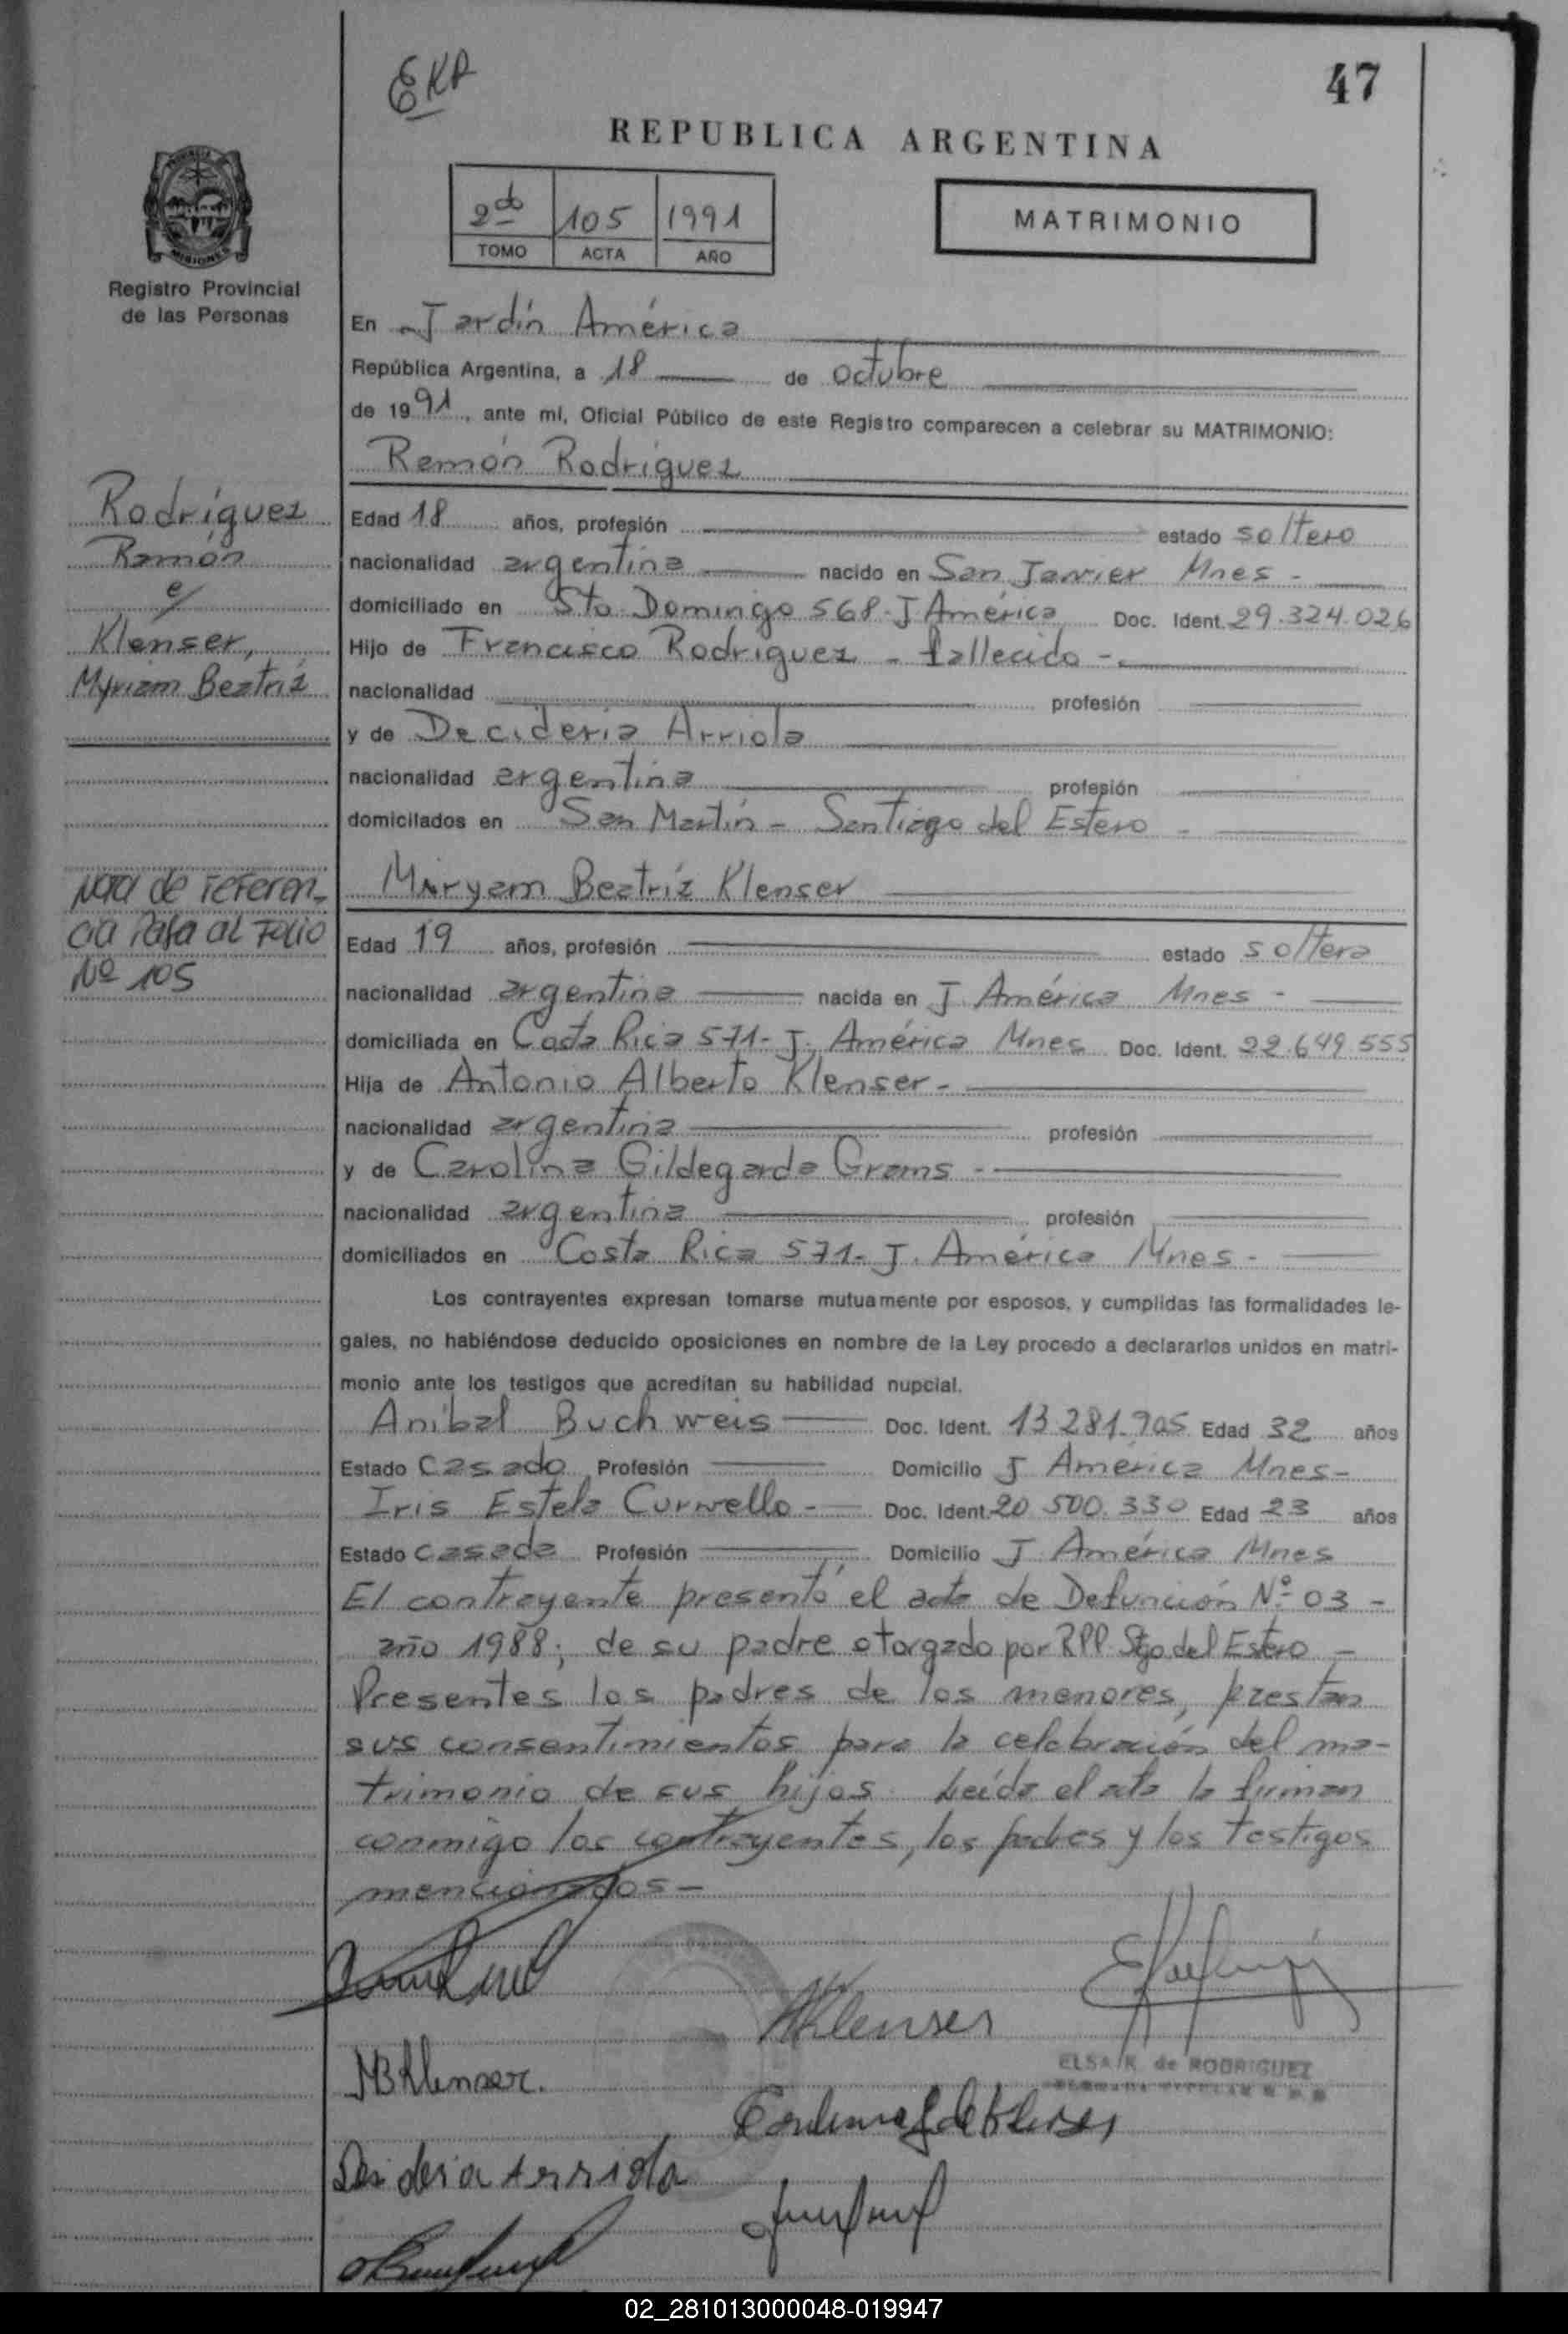 EKR
47
REPUBLICA ARGENTINA
2do 105 1991
TOMO ACTA AÑO
MATRIMONIO
PROVINCIA
MISIONES
Registro Provincial
de las Personas
En Jardín América
República Argentina, a 18 de octubre
de 1991, ante mí, Oficial Público de este Registro comparecen a celebrar su MATRIMONIO:
Ramón Rodríguez
Rodríguez
Ramón
c/
Klenser,
Myriam Beatríz
Edad 18 años, profesión estado soltero
nacionalidad argentina nacido en San Javier Mnes -
domiciliado en Sto. Domingo 568-J América Doc. Ident. 29.324.026
Hijo de Francisco Rodríguez - fallecido -
nacionalidad profesión
y de Decideria Arriola
nacionalidad argentina profesión
domiciliados en San Martín - Santiago del Estero -
Nota de referen-
cia Pasa al Folio
Nº 105
Miryam Beatríz Klenser
Edad 19 años, profesión estado soltera
nacionalidad argentina nacida en J. América Mnes -
domiciliada en Costa Rica 571- J. América Mnes Doc. Ident. 22.649.555
Hija de Antonio Alberto Klenser-
nacionalidad argentina profesión
y de Carolina Gildegarda Grams -
nacionalidad argentina profesión
domiciliados en Costa Rica 571- J. América Mnes -
Los contrayentes expresan tomarse mutuamente por esposos, y cumplidas las formalidades le-
gales, no habiéndose deducido oposiciones en nombre de la Ley procedo a declararlos unidos en matri-
monio ante los testigos que acreditan su habilidad nupcial.
Aníbal Buchweis Doc. Ident. 13.281.705 Edad 32 años
Estado Casado Profesión Domicilio J América Mnes-
Iris Estela Doc. Ident. 20.500.330 Edad 23 años
Estado casada Profesión Domicilio J América Mnes
El contrayente presentó el acta de Defunción Nº 03 -
año 1988; de su padre otorgado por RPP. Stgo del Estero -
Presentes los padres de los menores, prestan
sus consentimientos para la celebración del ma-
trimonio de sus hijos. Leída el acta la firman
conmigo los contrayentes, los padres y los testigos
mencionados -
AKlenser
MBKlenser.
ELSA R. de RODRIGUEZ
Desideria Arriola
02_281013000048-019947